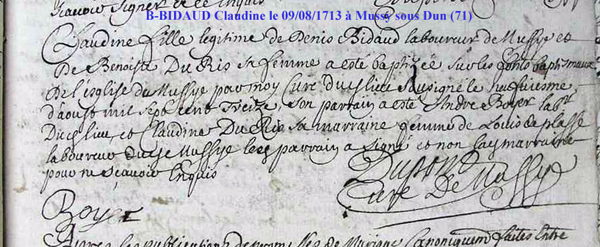 B-BIDAUD Claudine le 09/08/1713 à Mussy sous Dun (71)
Claudine fille legitime de Denis Bidaud laboureur de Mussye et
de Benoiste Du Ris sa femme a esté baptizée sur les fonts baptismaux
de l'esglise du Mussye par moy curé dudit lieu soussigné le neufiesme
d'aoust mil sept cent treize, son parrain a esté Andre Boyer lab.r
dudit lieu, et Claudine Du Ris sa marraine femme de Louis de
laboureur Mussye le parrain a signé et non lay marraine
pour ne scavoir Enquis
Dupont
Curé De Mussy
Boyer
les publications de